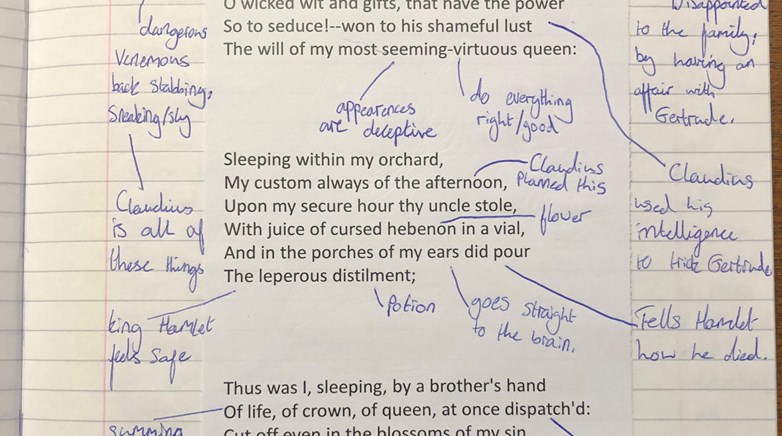 O wicked wit and gifts, that have the power
So to seduce!--won to his shameful lust
The will of my most seeming-virtuous queen:
dangerous
Venemous
back stabbing,
Sneaking/sly
Claudius
is all of
these things
appearences
are deceptive
do everything
right/good
Disappointed
to the family,
by having an
affair with
Gertrude.
Sleeping within my orchard,
My custom always of the afternoon,
Upon my secure hour thy uncle stole,
With juice of cursed hebenon in a vial,
And in the porches of my ears did pour
The leperous distilment;
Claudius
planned this
flower
Claudius
used his
intelligence
to trick Gertrude
king Hamlet
feels safe
Potion
goes straight
to the brain.
Tells Hamlet
how he died.
Thus was I, sleeping, by a brother's hand
Of life, of crown, of queen, at once dispatch'd:
Cut off even in the blossoms of my sin
summing